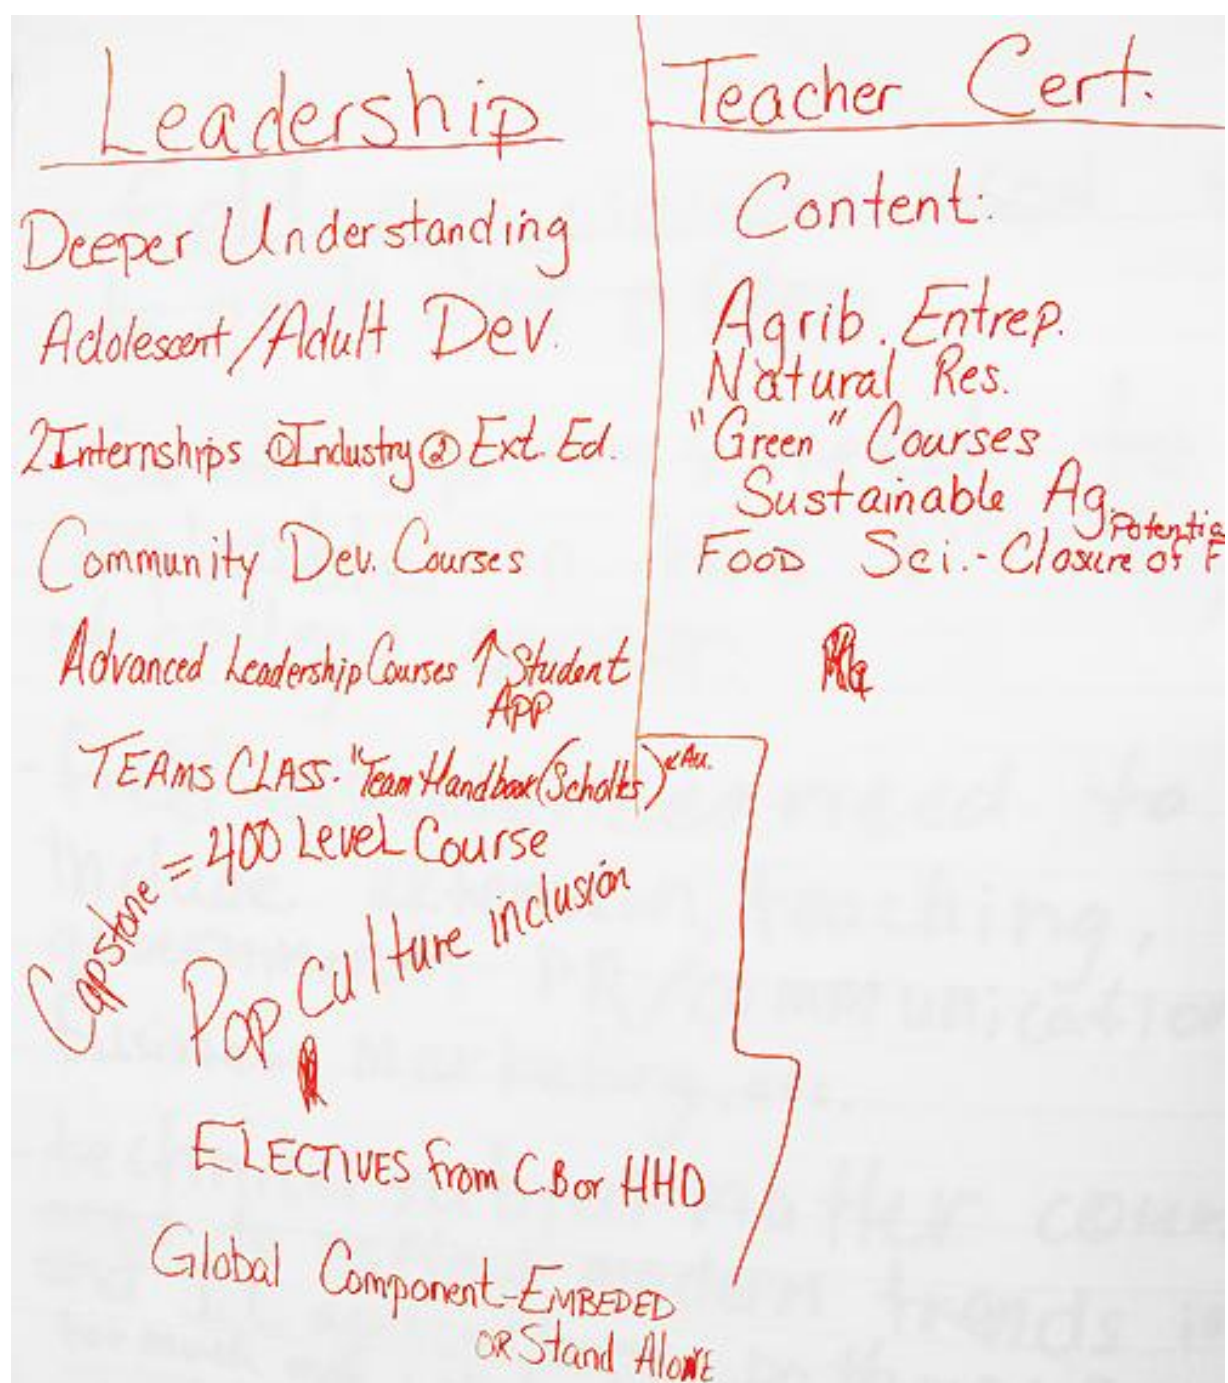 Leadership
Deeper Understanding
Adolescent/Adult Dev.
2 Internships ① Industry ② Ext. Ed.
Community Dev. Courses
Advanced Leadership Courses ↑ Student
APP.
TEAMS CLASS. "Team Handbook (Scholtes) Au.
Capstone = 400 Level Course
Pop Culture inclusion
ELECTIVES from C.B or HHD
Global Component - EMBEDED
OR Stand Alone
Teacher Cert.
Content:
Agrib. Entrep.
Natural Res.
"Green" Courses
Sustainable Ag.
Food Sci. - Closure of